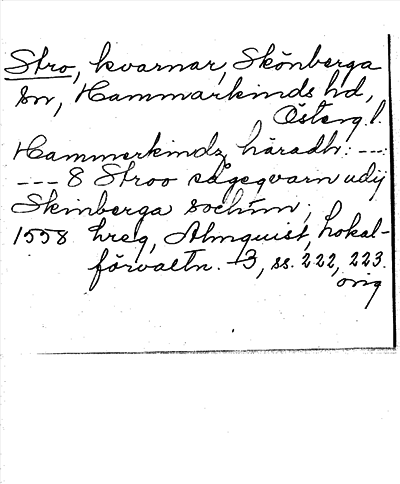 Stro, kvarnar, Skönberga
sn, Hammarkinds hd,
Österg. l.
Hammerkindz häradh: ---:
--- 8 Stroo sågeqvarn udij
Skinberga sochnn;
1558 hreg, Almquist, Lokal-
förvaltn. 3, ss. 222, 223.
orig